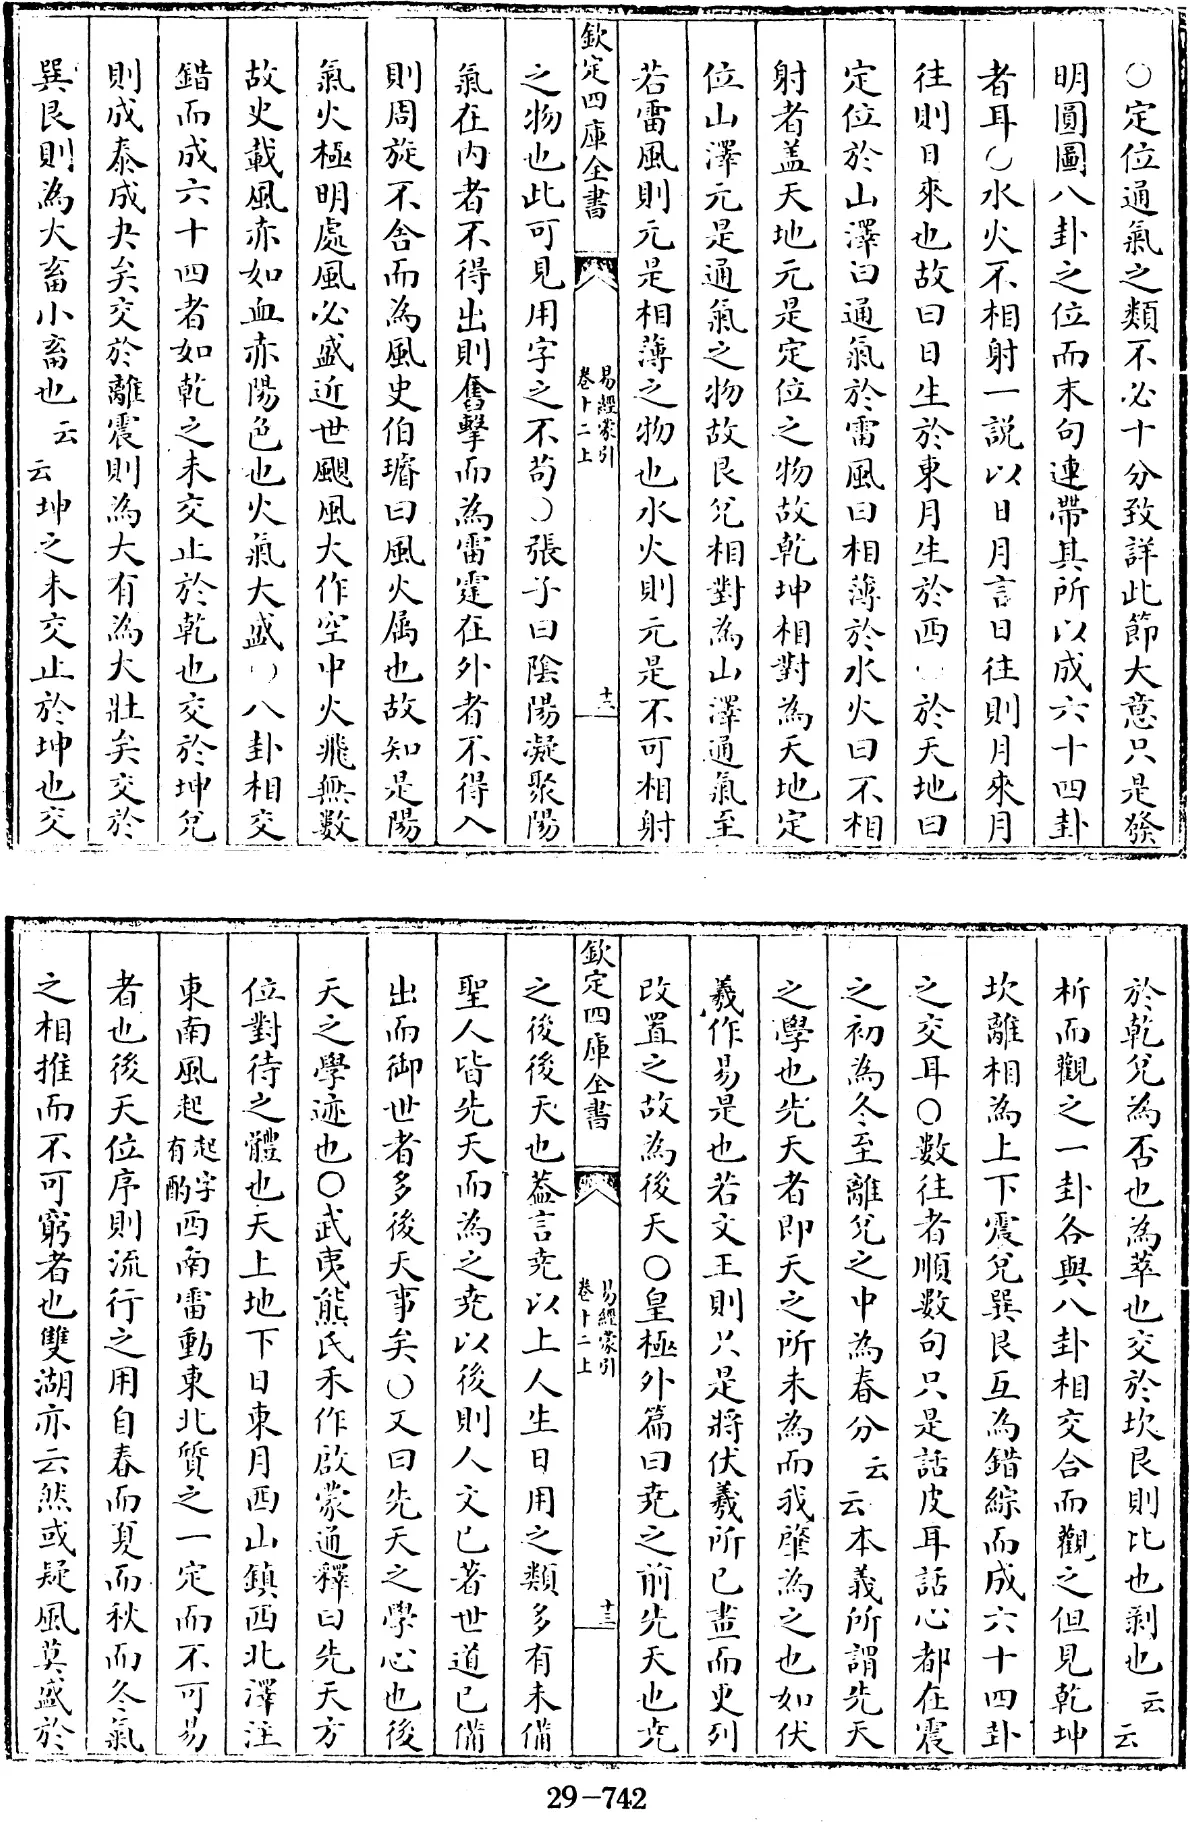 ○定位通氣之類不必十分致詳此節大意只是發
明圓圖八卦之位而末句連帶其所以成六十四卦
者耳○水火不相射一説以日月言日往則月來月
往則日來也故曰日生於東月生於西○於天地曰
定位於山澤曰通氣於雷風曰相薄於水火曰不相
射者盖天地元是定位之物故乾坤相對為天地定
位山澤元是通氣之物故艮兊相對為山澤通氣至
若雷風則元是相薄之物也水火則元是不可相射
欽定四庫全書
易經蒙引
卷十二上
十二
之物也此可見用字之不苟○張子曰陰陽凝聚陽
氣在内者不得出則奮擊而為雷霆在外者不得入
則周旋不舍而為風史伯璿曰風火屬也故知是陽
氣火極明處風必盛近世颶風大作空中火飛無數
故史載風赤如血赤陽色也火氣大盛○八卦相交
錯而成六十四者如乾之未交止於乾也交於坤兊
則成泰成夬矣交於離震則為大有為大壯矣交於
巽艮則為大畜小畜也云云坤之未交止於坤也交
於乾兊為否也為萃也交於坎艮則比也剥也云云
析而觀之一卦各與八卦相交合而觀之但見乾坤
坎離相為上下震兊巽艮互為錯綜而成六十四卦
之交耳○數往者順數句只是話皮耳話心都在震
之初為冬至離兊之中為春分云云本義所謂先天
之學也先天者即天之所未為而我肇為之也如伏
羲作易是也若文王則只是將伏羲所已畫而更列
改置之故為後天○皇極外篇曰堯之前先天也堯
欽定四庫全書
易經蒙引
卷十二上
十三
之後後天也葢言堯以上人生日用之類多有未備
聖人皆先天而為之堯以後則人文已著世道已備
出而御世者多後天事矣○又曰先天之學心也後
天之學迹也○武夷熊氏禾作啟蒙通釋曰先天方
位對待之體也天上地下日東月西山鎮西北澤注
東南風起起字有酌西南雷動東北質之一定而不可易
者也後天位序則流行之用自春而夏而秋而冬氣
之相推而不可窮者也雙湖亦云然或疑風莫盛於
29-742